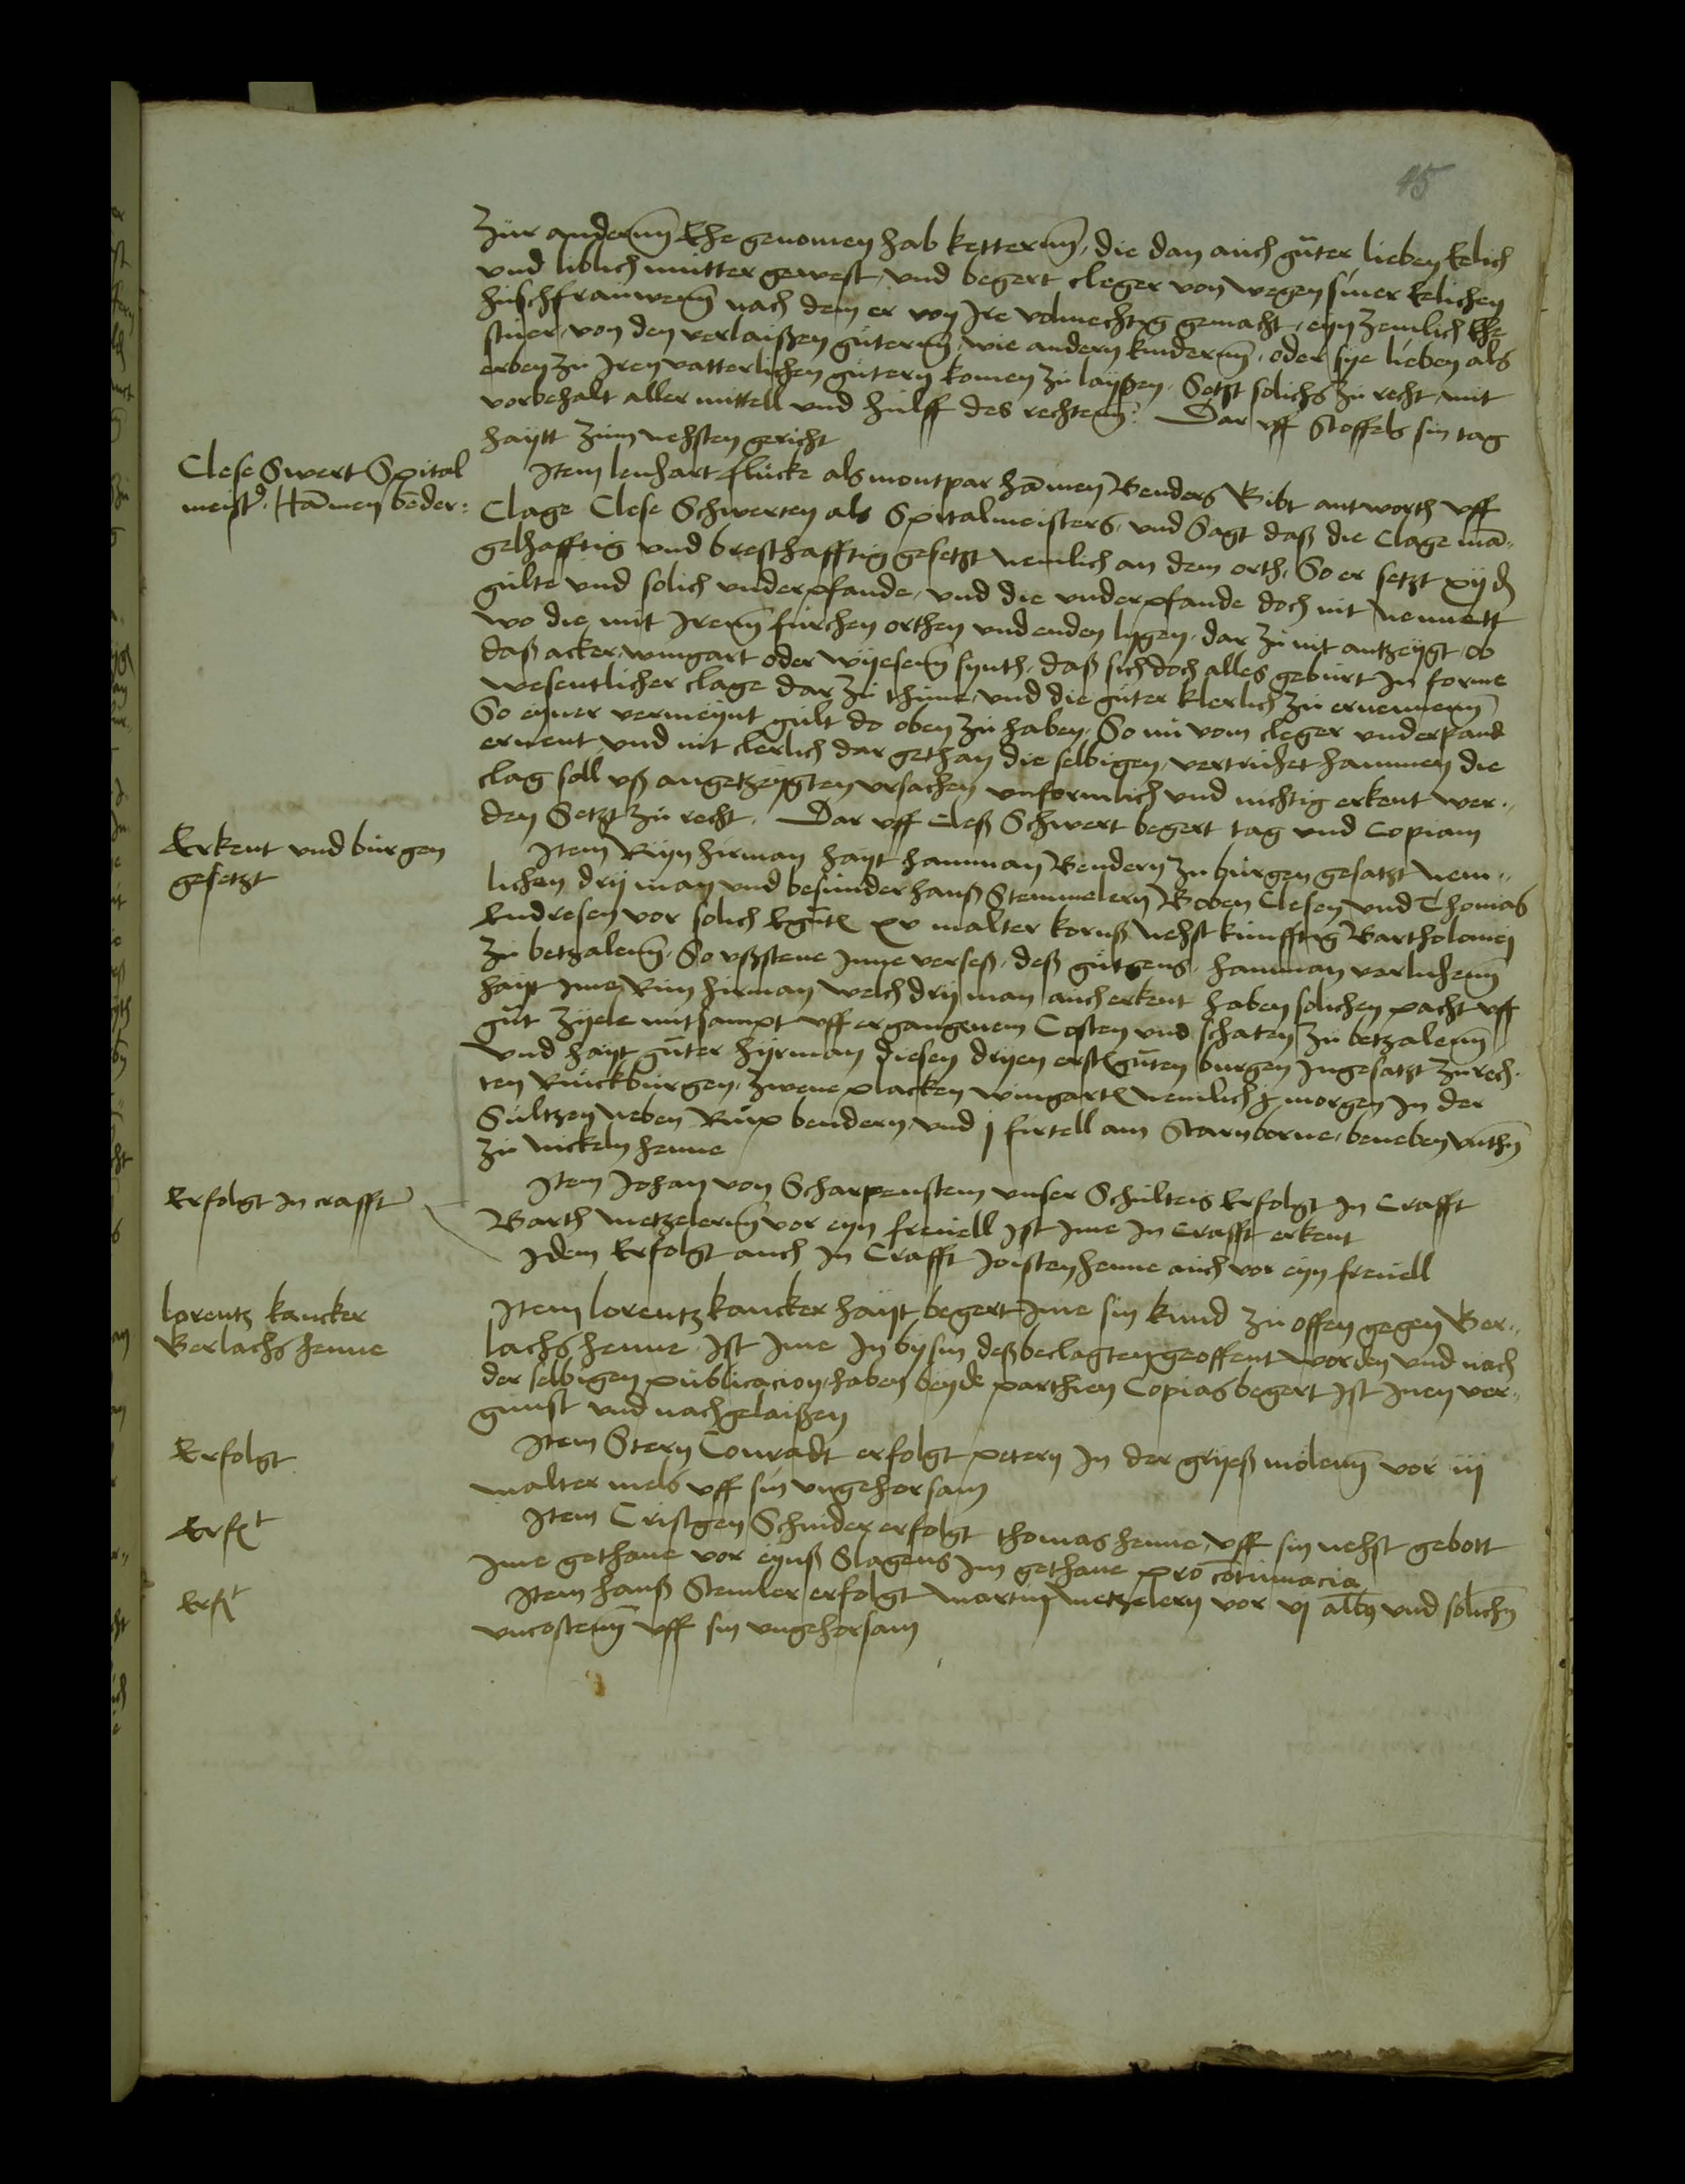 45
zur andernn Ehe genomen hab ketternn, die dan auch guter lieben Eelich
vnd liblich mutter gewest, vnd begert cleger von wegen siner Eelichen
huschfrauwenn nach dem er von Ire volmechtig gemacht, eyn zemlich Ehe
stuer, von den verlaißen guternn, wie andern kindernn, oder sye lieben als
erben zu Iren vatterlichen gutern komen zu layßen, Setzt solichs zu recht, mit
vorbehalt aller mittell vnd hulff des rechtenn. Dar vff Stoffels sin tag
haytt zum nehsten gericht
Clese Swert Spital
meister, Hāmen bender:
Item lenhart flucke als montpar hāmen Benders Gibt antworth vff
Clage Clese Schwerten als Spitalmeisters, vnd Sagt daß die Clage mā-
gelhafftig vnd bresthafftig gesetzt nemlich an dem orth, So er setzt xij d
gulte vnd solich vnderpfande, vnd die vnderpfande doch nit nennett
wo die mit Irenn furchen orthen vnd enden lygen, dar zu nit antzeygt, ob
daß acker, wingart oder wyesenn synth, daß sich doch alles geburt In forme
wesentlicher clage dar zu thune, vnd die guter klerlich zu ernennenn
So eyner vermeynt gult do oben zu haben, So nu vom cleger vnderpand
ernent vnd nit clerlich dar gethan die selbigen, vertruhet hammen die
clag soll vß angetzeygten vrsachen vnformlich vnd nichtig erkent wer-
den Setzt zu recht. Dar vff Cleß Schwert begert tag vnd Copiam
Erkent vnd burgen
gesetzt
Item Ryn hirman hayt hamman Bendern zu burgen gesatzt nem-
lichen dry man vnd besunder hanß Stemmelern Beben Clesen vnd Thomas
Endresen vor solich xv malter kornß nehst kunfftig Bartholomei
zu betzalenn, So vßstene Inne verseß, deß gutgens, hamman verluhenn
hayt Ime Rin hirman welch dry man auch erkent haben solichen pacht vff
gut zyele mitsampt vff ergangenem Costen vnd schaten zu betzalenn
vnd hayt guter hyrman diesen dryen erst guten burgen Ingesatzt zu rech-
ten Ruckburgen, zwene placken wingart nemlich morgen In der
Sultzen neben Rup bendern, vnd j firtell am Starnborne, beneben
zu Nickeln henne
Erfolgt In crafft
Item Johan von Scharpenstein vnser Schulteis Erfolgt In Crafft
Barth metzelernn vor eyn freuell Ist Ime In Crafft erkent
Idem Erfolgt auch In Crafft Joisten henne auch vor eyn freuell
lorentz kancker
Gerlachs henne
Item lorentz kancker hayt begert Ime sin kund zu offen gegen Ger-
lachs henne, Ist Ime In bysin deß beclagten geoffent worden vnd nach
der selbigen publicacion, haben beyde parthien Copias begert Ist Inen ver-
gunst vnd nachgelaißen
Erfolgt
Item Stern Conradt erfolgt petern In der gryeß molenn vor iij
malter mels vff sin vngehorsam
Erft
Item Cristgen Schnider erfolgt thomas henne, vff sin nehst gebott
Ime gethane vor eynß Slagens Im gethane pro cōtumacia
Erft
Item hanß Stemler erfolgt martin metzelern vor vj alb vnd solichn
vncostenn vff sin vngehorsam